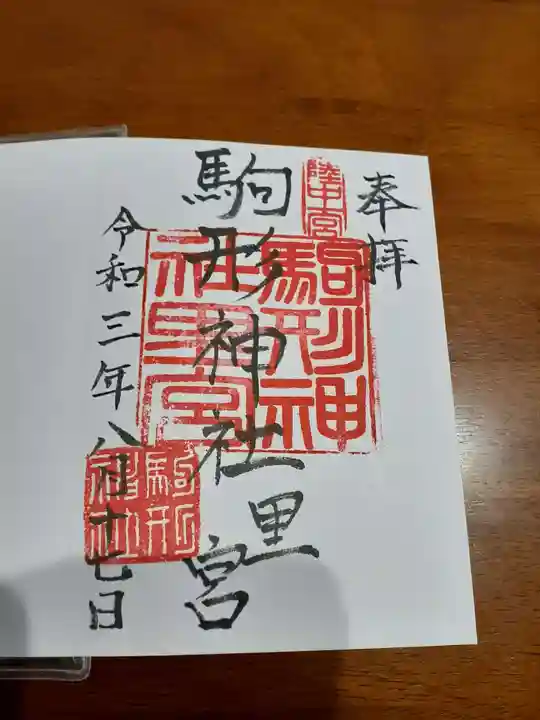 奉拝
陸中宮
駒形神社里宮
駒形神社里宮
令和三年八月十七日
駒形神社